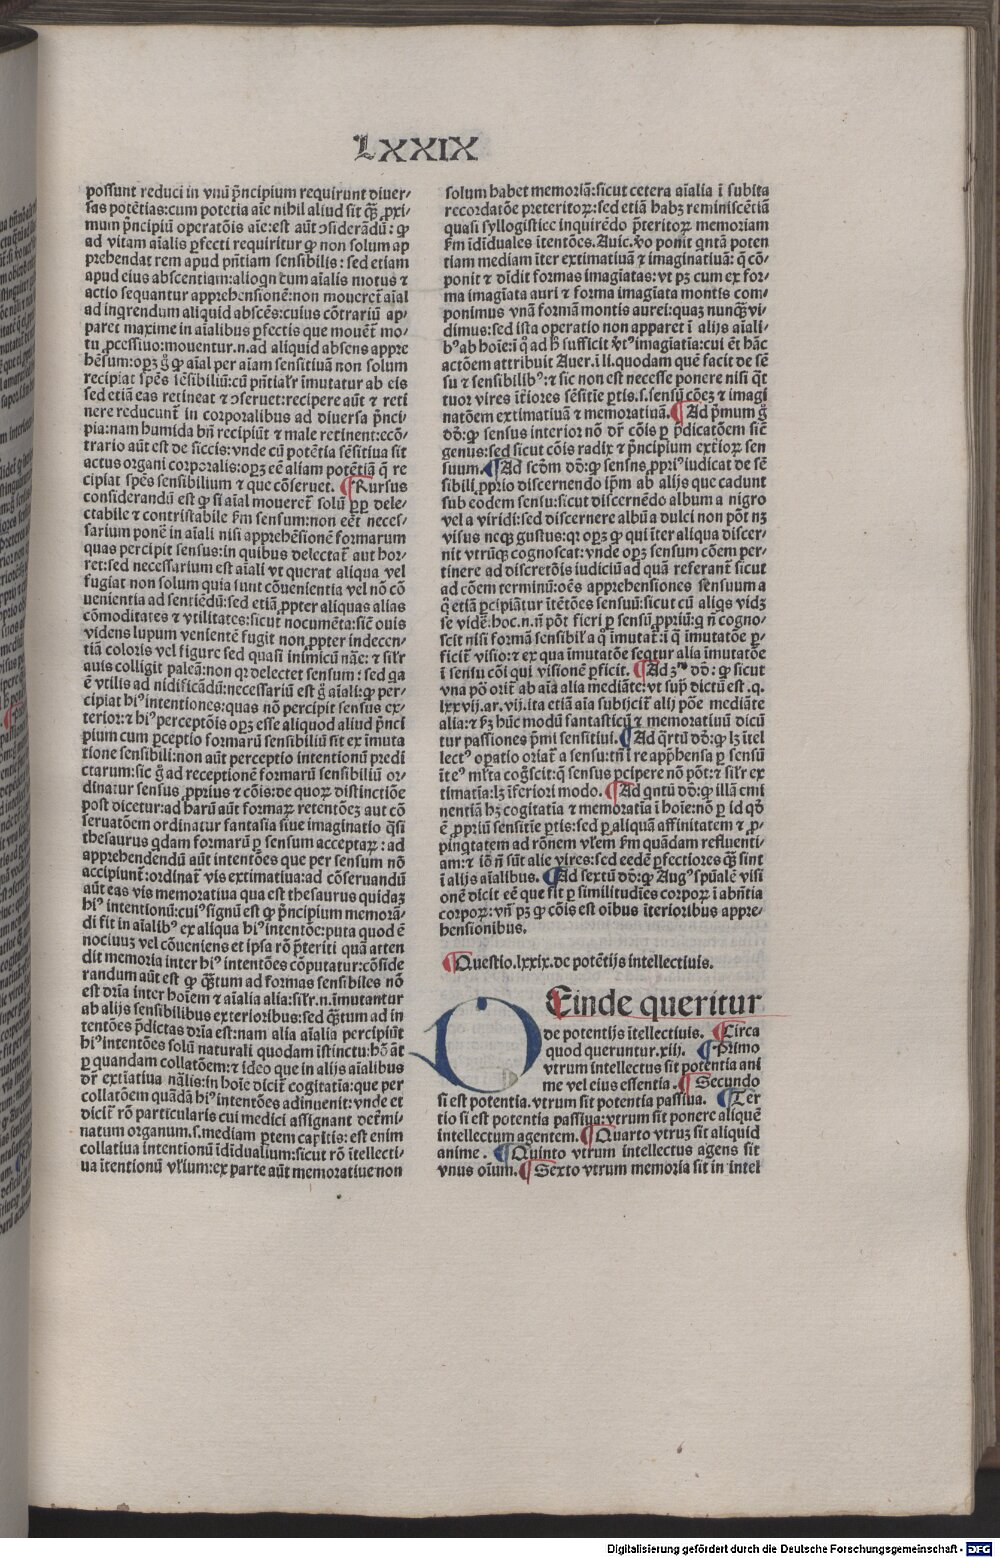 LXXIX
possunt reduci in vnū p̄ncipium requirunt diuer-
sas potētias: cum potētia aīe nihil aliud sit q̄ꝫ ꝓxi-
mum p̄ncipiū operatōis aīe: est aūt ↄsiderādū: ꝙ
ad vitam aīalis ꝑfecti requiritur ꝙ non solum ap
prehendat rem apud p̄ntiam sensibilis: sed etiam
apud eius abscentiam: alioqn̄ cum aīalis motus ⁊
actio sequantur apprehensionē: non moueret̄ aīal
ad inqrendum aliquid abscēs: cuius cōtrariū ap-
paret maxime in aīalibus ꝑfectis que mouēt̄ mo-
tu ꝓcessiuo: mouentur .n. ad aliquid absens appre
hēsum: oꝑꝫ g̊ ꝙ aīal per aīam sensitiuā non solum
recipiat sp̄es sēsibiliū: cū p̄ntialr̄ īmutatur ab eis
sed etiā eas retineat ⁊ ↄseruet: recipere aūt ⁊ reti
nere reducunt̄ in corporalibus ad diuersa p̄nci-
pia: nam humida bn̄ recipiūt ⁊ male retinent: ecō-
trario aūt est de siccis: vnde cū potētia sēsitiua sit
actus organi corporalis: oꝑꝫ eē aliam potētiā q̄ re
cipiat sp̄es sensibilium ⁊ que cōseruet. ¶Rursus
considerandū est ꝙ si aīal moueret̄ solū ꝓp̄ dele-
ctabile ⁊ contristabile ẜm sensum: non eēt neces-
sarium ponē in aīali nisi apprehēsionē formarum
quas percipit sensus: in quibus delectat̄ aut hor-
ret: sed necessarium est aīali vt querat aliqua vel
fugiat non solum quia sunt cōuenientia vel nō cō
uenientia ad sentiēdū: sed etiā ꝓpter aliquas alias
cōmoditates ⁊ vtilitates: sicut nocumēta: sic̄ ouis
videns lupum venientē fugit non ꝓpter indecen-
tiā coloris vel figure sed quasi inimicū nāe: ⁊ silr̄
auis colligit paleā: non qꝛ delectet sensum: sed qa
ē vtilis ad nidificādū: necessariū est g̊ aīali: ꝙ per-
cipiat hiꝰ intentiones: quas nō percipit sensus ex-
terior: ⁊ hiꝰ perceptōis oꝑꝫ esse aliquod aliud p̄nci
pium cum ꝑceptio formarū sensibiliū sit ex īmuta
tione sensibili: non aūt perceptio intentionū predi
ctarum: sic g̊ ad receptionē formarū sensibiliū or-
dinatur sensus ꝓprius ⁊ cōis: de quoꝝ distinctiōe
post dicetur: ad harū aūt formaꝝ retentōeꝫ aut cō
seruatōem ordinatur fantasia siue imaginatio q̄si
thesaurus qdam formarū ꝑ sensum acceptaꝝ: ad
apprehendendū aūt intentōes que per sensum nō
accipiunt̄: ordinat̄ vis extimatiua: ad cōseruandū
aūt eas vis memoratiua qua est thesaurus quidaꝫ
hiꝰ intentionū: cuiꝰ signū est ꝙ p̄ncipium memorā-
di fit in aīalibꝰ ex aliqua hiꝰ intentōe: puta quod ē
nociuuꝫ vel cōueniens et ipsa rō p̄teriti quā atten
dit memoria inter hiꝰ intentōes cōputatur: cōside
randum aūt est ꝙ q̄ꝫtum ad formas sensibiles nō
est dr̄ia inter hoīem ⁊ aīalia alia: silr̄ .n. īmutantur
ab alijs sensibilibus exterioribus: sed q̄ꝫtum ad in
tentōes p̄dictas dr̄ia est: nam alia aīalia percipiūt
hiꝰ intentōes solū naturali quodam īstinctu: hō āt
ꝑ quandam collatōem: ⁊ ideo que in alijs aīalibus
dr̄ extīatiua nālis: in hoīe dicit̄ cogitatīa: que per
collatōem quādā hiꝰ intentōes adinuenit: vnde et
dicit̄ rō particularis cui medici assignant det̄mi-
natum organum .s. mediam ꝑtem capitis: est enim
collatiua intentionū īdīdualium: sicut rō ītellecti-
ua ītentionū vl̄ium: ex parte aūt memoratiue non
solum habet memoriā: sicut cetera aīalia ī subita
recordatōe preteritoꝝ: sed etiā habꝫ reminiscētiā
quasi syllogistice inquirēdo p̄teritoꝝ memoriam
ẜm īdīduales ītentōes. Auic. v̊o ponit qntā poten
tiam mediam īter extimatiuā ⁊ imaginatiuā: q̄ cō-
ponit ⁊ dīdit formas imagīatas: vt pꝫ cum ex for-
ma imagīata auri ⁊ forma imagīata montis com-
ponimus vnā formā montis aurei: quaꝫ nunq̄ꝫ vi-
dimus: sed ista operatio non apparet ī alijs aīali-
bꝰ ab hoīe: ī q̊ ad h̊ sufficit v̊tꝰ imagiatīa: cui ēt hāc
actōem attribuit Auer. ī li. quodam quē facit de sē
su ⁊ sensibilibꝰ: ⁊ sic non est necesse ponere nisi q̄t
tuor vires īt̄iores sēsitīe ꝑtis .s. sensū cōeꝫ ⁊ imagi
natōem extimatiuā ⁊ memoratiuā. ¶Ad p̄mum g̊
dō: ꝙ sensus interior nō dr̄ cōis ꝑ p̄dicatōem sic̄
genus: sed sicut cōis radix ⁊ p̄ncipium ext̄ioꝝ sen
suum. ¶Ad scdm dō: ꝙ sensns ꝓpriꝰ iudicat de sē
sibili ꝓprio discernendo ip̄m ab alijs que cadunt
sub eodem sensu: sicut discernēdo album a nigro
vel a viridi: sed discernere albū a dulci non pōt nꝫ
visus neqꝫ gustus: qꝛ oꝑꝫ ꝙ qui īter aliqua discer-
nit vtrūqꝫ cognoscat: vnde oꝑꝫ sensum cōem per-
tinere ad discretōis iudiciū ad quā referant̄ sicut
ad cōem terminū: oēs apprehensiones sensuum a
q̊ etiā ꝑcipiātur ītētōes sensuū: sicut cū aliqs vidꝫ
se videē: hoc .n. n̄ pōt fieri ꝑ sensū ꝓpriū: q n̄ cogno-
scit nisi formā sensibil̄ a q̊ īmutat̄: ī q̄ īmutatōe ꝑ-
ficit̄ visio: ⁊ ex qua īmutatōe seqtur alia īmutatōe
ī sensu cōi qui visionē ꝑficit. ¶Ad 3ᵐ dō: ꝙ sicut
vna pō orit̄ ab aīa alia mediāte: vt supͣ dictū est .q.
lxxvij. ar. vij. ita etiā aīa subijcit̄ alij pōe mediāte
alia: ⁊ ẜꝫ hūc modū fantasticū ⁊ memoratiuū dicū
tur passiones p̄mi sensitiui. ¶Ad q̄rtū dō: ꝙ lꝫ ītel
lectꝰ oꝑatio oriat̄ a sensu: tn̄ ī re app̄hensa ꝑ sensū
īteꝰ ml̄ta cog̊scit: q̄ sensus ꝑcipere nō pōt: ⁊ silr̄ ex
timatīa: lꝫ īferiori modo. ¶Ad qntū dō: ꝙ illā emi
nentiā hꝫ cogitatīa ⁊ memoratīa ī hoīe: nō ꝑ id qd̊
ē ꝓpriū sensitīe ꝑtis: sed ꝑ aliquā affinitatem ⁊ ꝓ-
pinqtatem ad rōnem vl̄em ẜm quādam refluenti-
am: ⁊ iō n̄ sūt alie vires: sed eedē ꝑfectiores q̄ꝫ sint
ī alijs aīalibus. ¶Ad sextū dō: ꝙ Augꝰ spūalē visi
onē dicit eē que fit ꝑ similitudīes corpoꝝ ī abn̄tia
corpoꝝ: vn̄ pꝫ ꝙ cōis est oībus īterioribus appre-
hensionibus.
¶Questio .lxxix. de potētijs intellectiuis.
DEinde queritur
de potentijs ītellectiuis. ¶Circa
quod queruntur .xiij. ¶Primo
vtrum intellectus sit potentia ani
me vel eius essentia. ¶Secundo
si est potentia. vtrum sit potentia passiua. ¶Ter
tio si est potentia passiua: vtrum sit ponere aliquē
intellectum agentem. ¶Quarto vtruꝫ sit aliquid
anime. ¶Quinto vtrum intellectus agens sit
vnus oīum. ¶Sexto vtrum memoria sit in intel
Digitalisierung gefördert durch die Deutsche Forschungsgemeinschaft - DFG